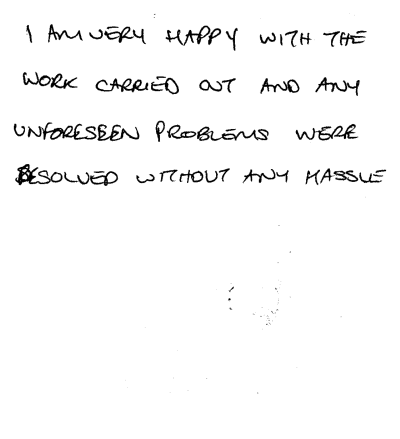 I AM VERY HAPPY WITH THE
WORK CARRIED OUT AND ANY
UNFORESEEN PROBLEMS WERE
RESOLVED WITHOUT ANY HASSLE